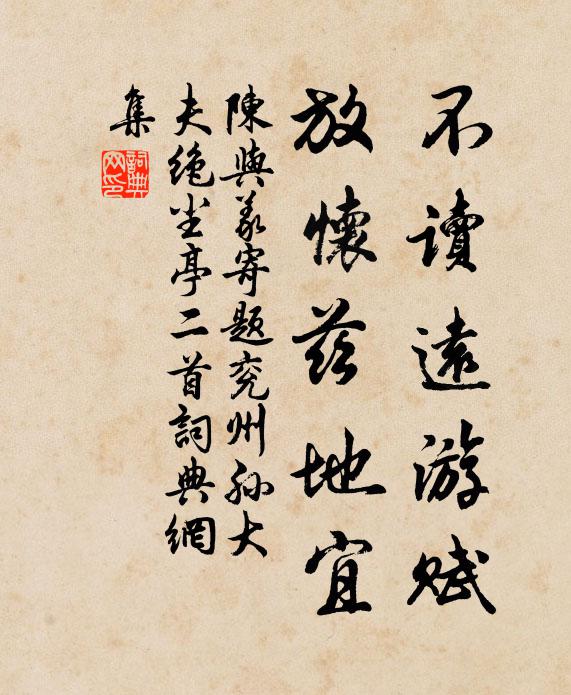 不讀遠游賦
放懷茲地宜
陳與義寄題兗州孫大
夫絶塵亭二首詞典網
集
詞典網印